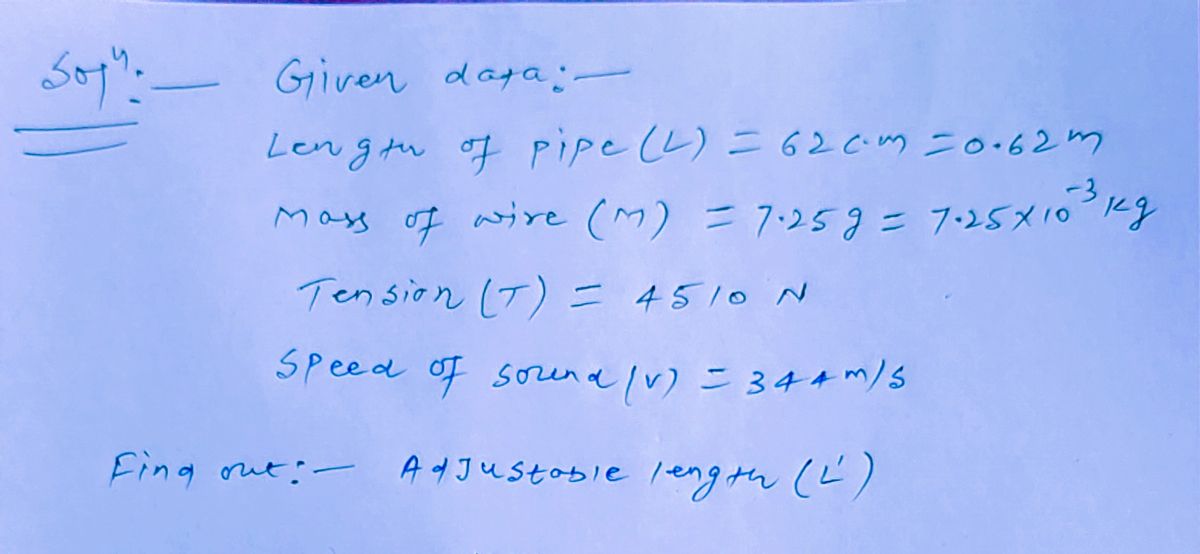 Solⁿ:— Given data:—
Length of pipe (L) = 62 c.m = 0.62 m
Mass of wire (M) = 7.25 g = 7.25 × 10⁻³ kg
Tension (T) = 4510 N
Speed of sound (v) = 344 m/s
Find out:— Adjustable length (L')